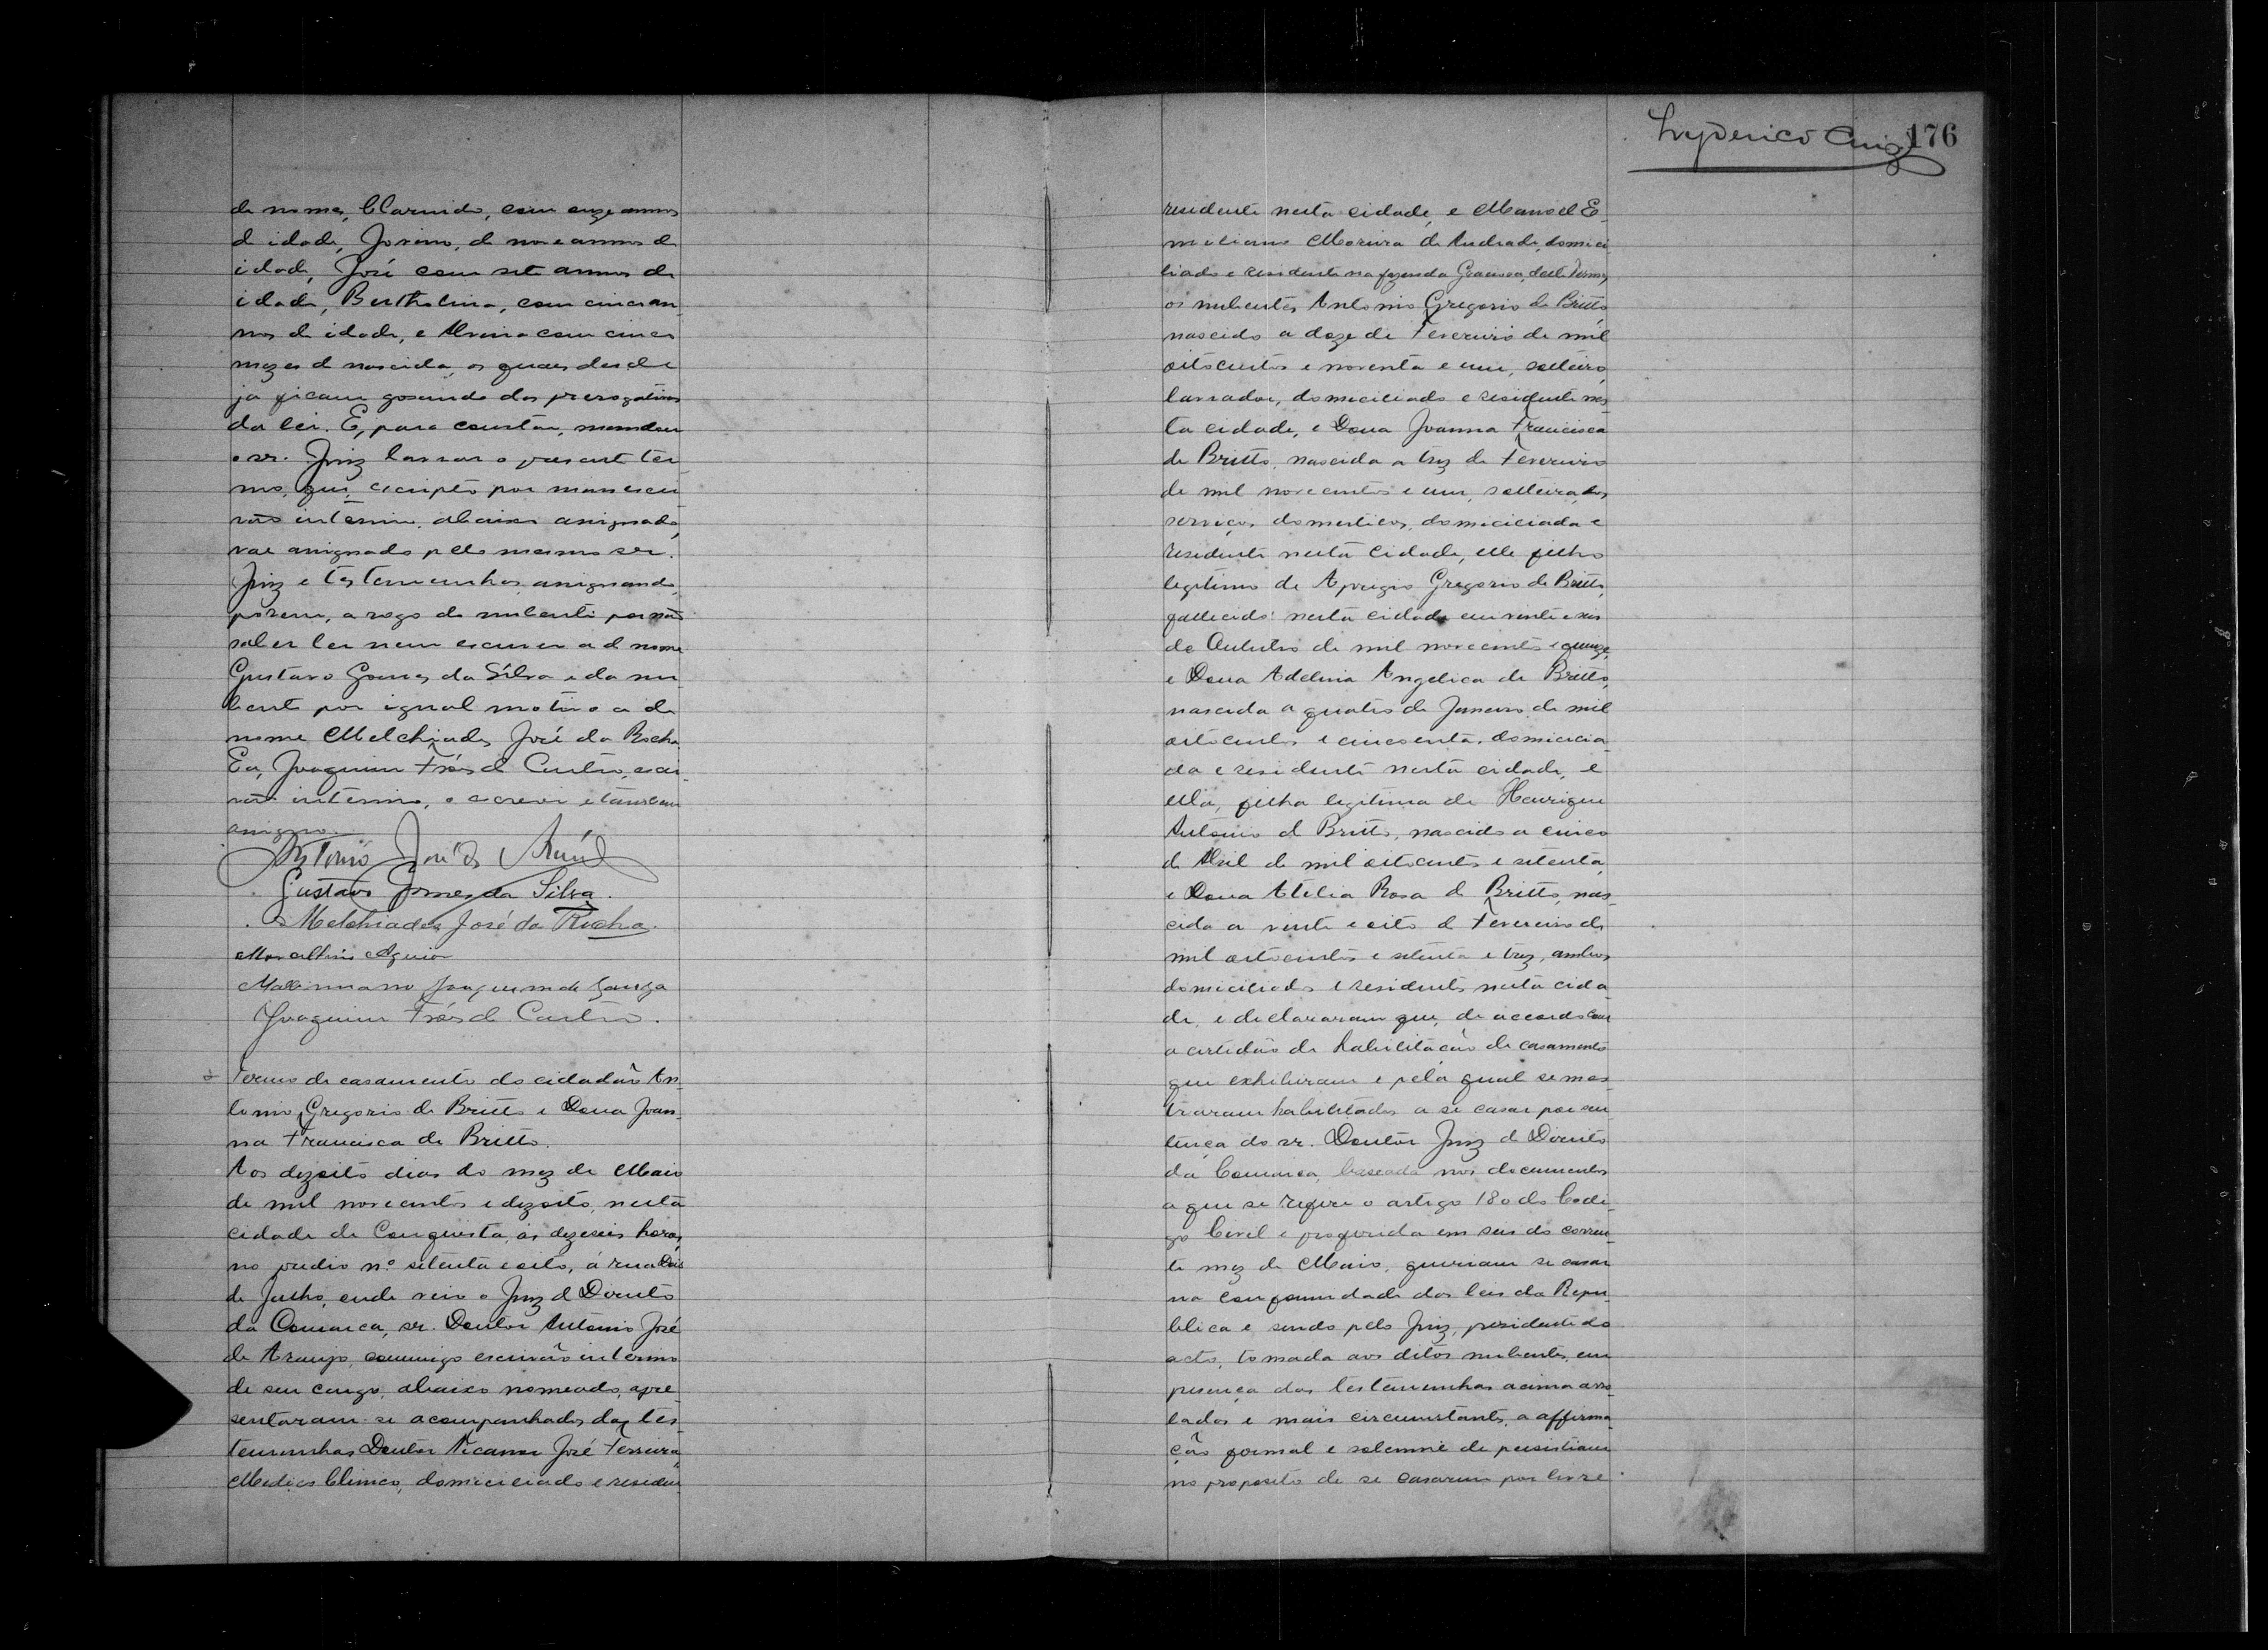 de nomes, Clarindo, com onze annos
de idade, Jovino, de nove annos de
idade, José com sete annos de
idade, Bertholina, com cinco an-
nos de idade, e Alvina com cinco
mezes de nascida, os quaes desde
já ficam gosando das prerogativas
da lei. E, para constar, mandou
o sr. Juiz lavrar o presente ter-
mo, que, escripto por mim escri-
vão interino, abaixo assignado,
vae assignado pelo mesmo sr.
Juiz e testemunhas, assignando,
porem, a rogo do nubente por não
saber ler nem escrever a de nome
Gustavo Gomes da Silva e da nu-
bente por igual motivo a de
nome Melchiades José da Rocha
Eu, Joaquim Fróes de Castro, escri-
vão interino, o escrevi e tambem
assigno.
Antonio José de
Gustavo Gomes da Silva.
Melchiades José da Rocha.
Aguiar
Maximiano Joaquim de Souza
Joaquim Fróes de Castro.
Termo de casamento do cidadão An-
tonio Gregorio de Britto e Dona Joan-
na Francisca de Britto.
Aos dezoito dias do mez de Maio
de mil novecentos e dezoito, nesta
cidade de Conquista, ás dezeseis horas,
no predio nº setenta e oito, á rua Dois
de Julho, onde veio o Juiz de Direito
da Comarca, sr. Doutor Antonio José
de Araujo, commigo escrivão interino
de seu cargo, abaixo nomeado, apre-
sentaram-se acompanhados das tes-
temunhas Doutor Nicanor José Ferreira,
Medico Clinico, domiciliado e residen-
Lyderico Cruz 176
residente nesta cidade, e Manoel E-
miliano Moreira de Andrade, domici-
liado e residente na fazenda deste Termo,
os nubentes Antonio Gregorio de Britto,
nascido a doze de Fevereiro de mil
oitocentos e noventa e um, solteiro,
lavrador, domiciliado e residente nes-
ta cidade, e Dona Joanna Francisca
de Britto, nascida a trez de Fevereiro
de mil novecentos e um, solteira, dos
serviços domesticos, domiciliada e
residente nesta cidade, elle filho
legitimo de Aprigio Gregorio de Britto,
fallecido nesta cidade em vinte e seis
de Outubro de mil novecentos e quinze,
e Dona Adelina Angelica de Britto,
nascida a quatro de Janeiro de mil
oitocentos e cincoenta, domicilia-
da e residente nesta cidade, e
ella, filha legitima de Henrique
Antonio de Britto, nascido a cinco
de Abril de mil oitocentos e setenta,
e Dona Atelia Rosa de Britto, nas-
cida a vinte e oito de Fevereiro de
mil oitocentos e setenta e trez, ambos
domiciliados e residentes nesta cida-
de, e declararam que, de accordo com
a certidão de habilitação de casamento
que exhibiram e pela qual se mos-
traram habilitados a se casar por sen-
tença do sr. Doutor Juiz de Direito
da Comarca, baseada nos documentos
a que se refere o artigo 180 do Codi-
go Civil e proferida em seis do corren-
te mez de Maio, queriam se casar
na conformidade das leis da Repu-
blica e sendo pelo Juiz, presidente do
acto, tomada aos ditos nubentes, em
presença das testemunhas acima arro-
ladas e mais circumstantes, a affirma-
ção formal e solemne de persistiam
no proposito de se casarem por livre